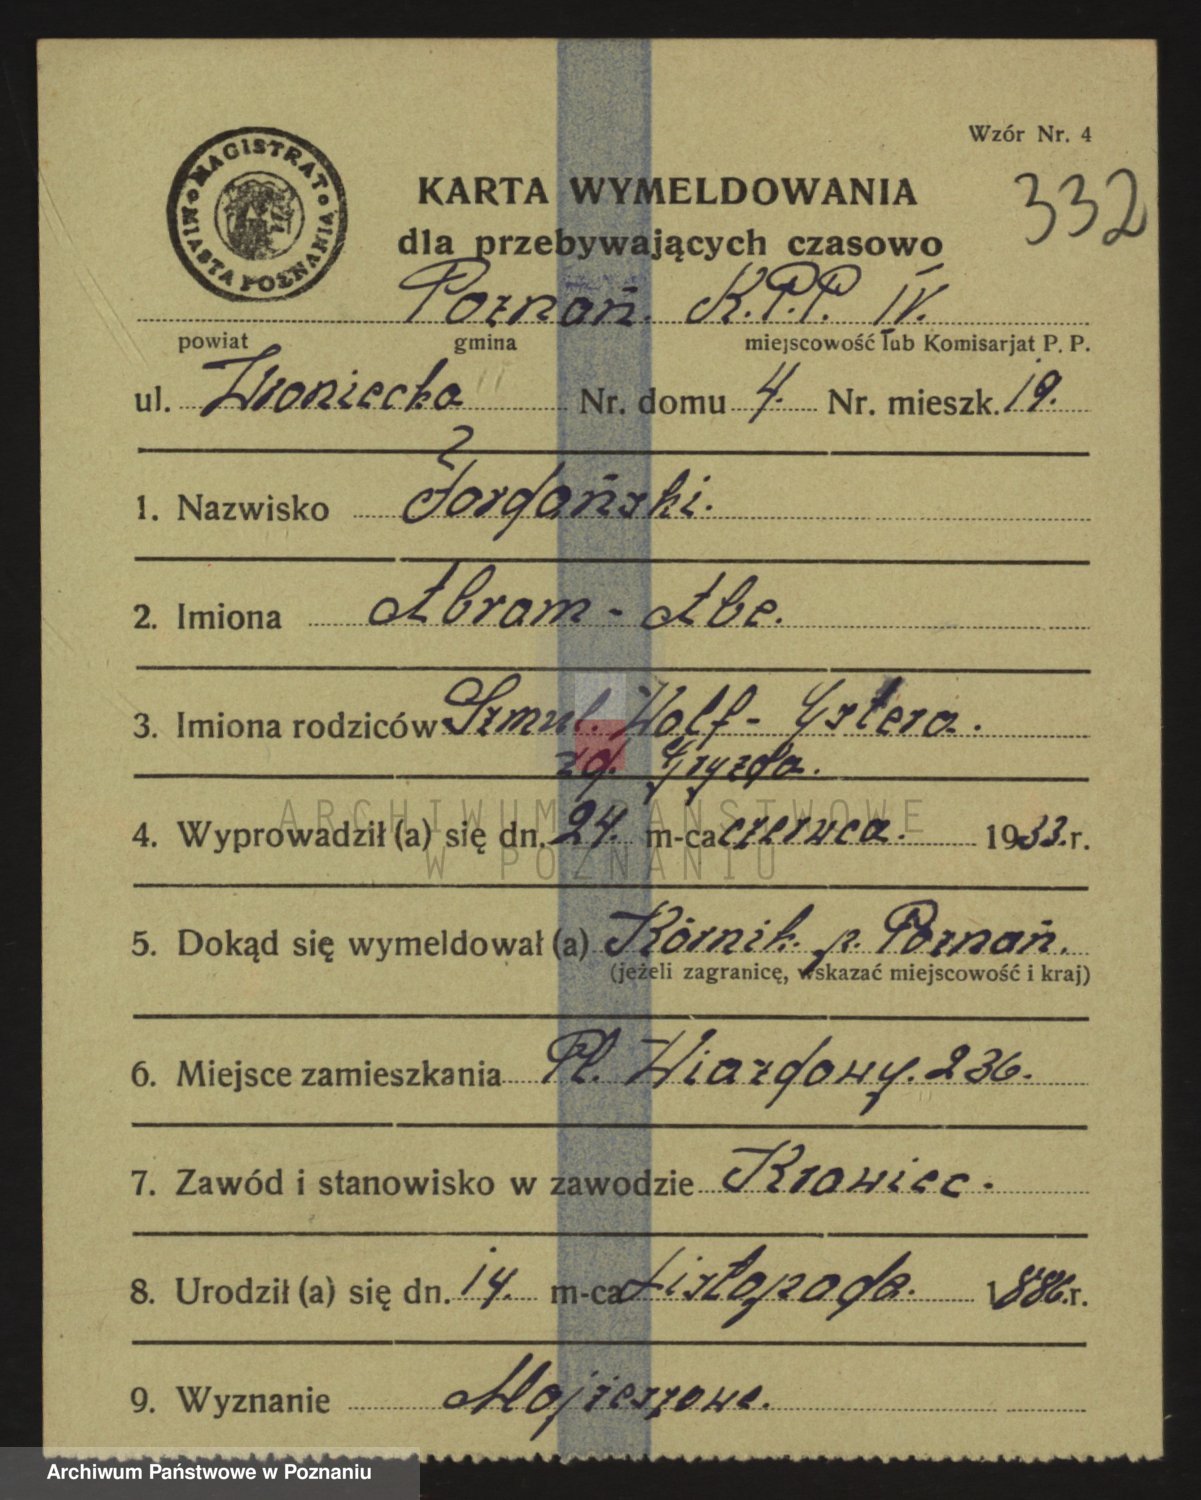 Wzór Nr. 4
MAGISTRAT MIASTA POZNANIA
KARTA WYMELDOWANIA
332
dla przebywających czasowo
Poznań. K.P.P. IV.
powiat gmina miejscowość lub Komisarjat P. P.
ul. Wroniecka Nr. domu 4. Nr. mieszk. 19.
1. Nazwisko Jordański.
2. Imiona Abram - Abe.
3. Imiona rodziców Szmul. Wolf - Estera.
zd. Gryzda.
ARCHIWUM PAŃSTWOWE
4. Wyprowadził (a) się dn. 24. m-ca czerwca. 1933.r.
W POZNANIU
5. Dokąd się wymeldował (a) Kórnik p. Poznań.
(jeżeli zagranicę, wskazać miejscowość i kraj)
6. Miejsce zamieszkania Pl. Wiazdowy. 236.
7. Zawód i stanowisko w zawodzie Krawiec.
8. Urodził (a) się dn. 14. m-ca Listopada. 1886.r.
9. Wyznanie Mojżeszowe.
Archiwum Państwowe w Poznaniu